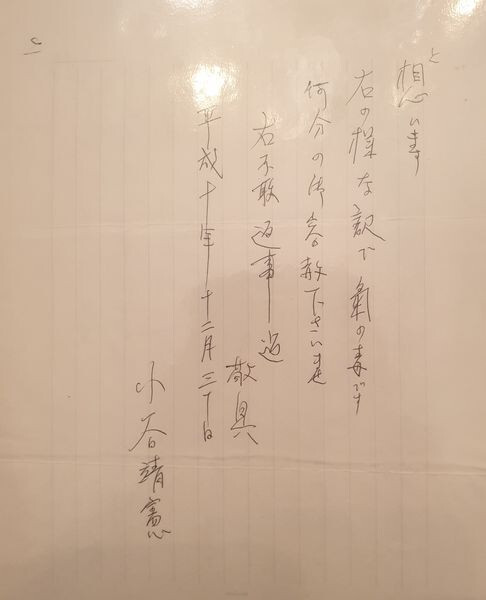 と想います
右の様な訳で氣の毒です
何分の御容赦下さいませ
右不敢返事迄
敬具
平成十年十二月三十日
小谷靖憲